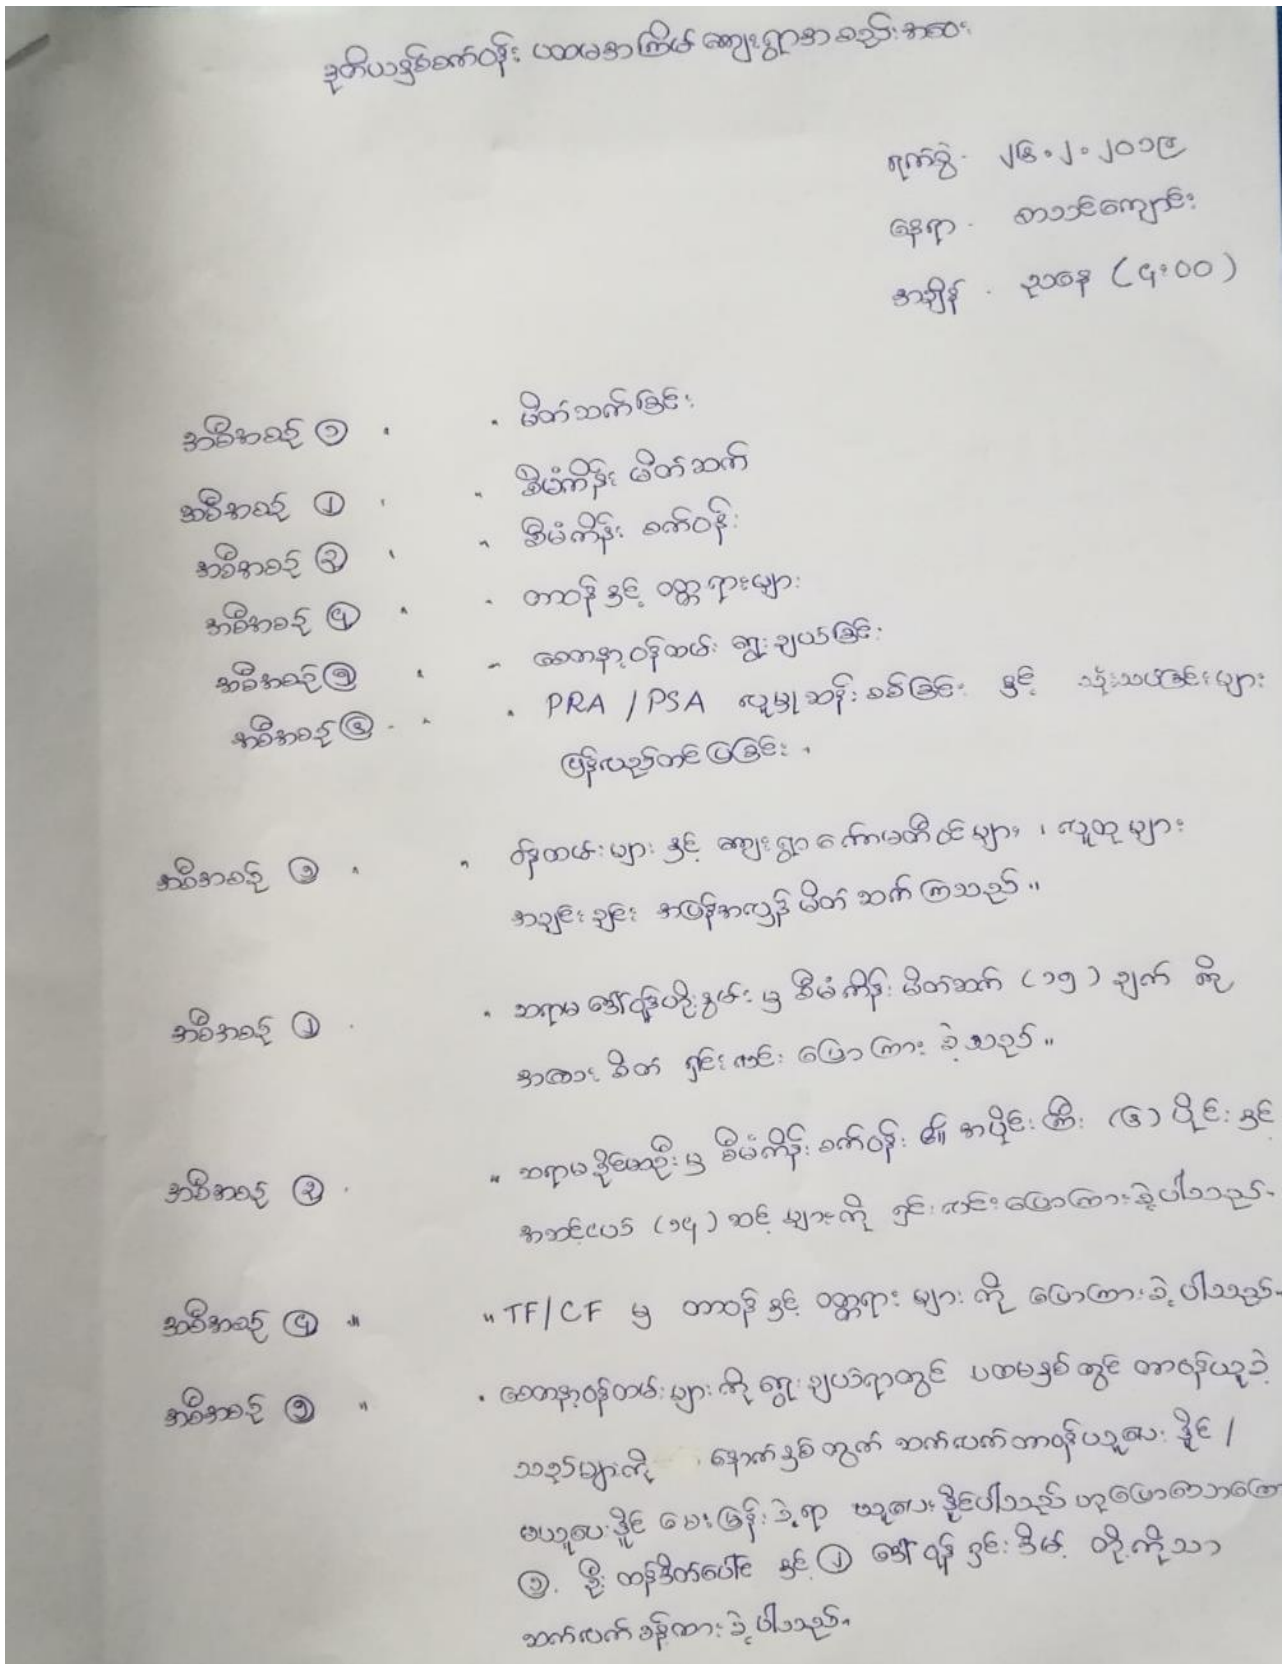 ဒုတိယနှစ်စက်ဝန်း ပထမအကြိမ် ကျေးရွာအစည်းအဝေး
ရက်စွဲ - ၂၆.၂.၂၀၁၉
နေရာ - စာသင်ကျောင်း
အချိန် - ညနေ (၄:၀၀)
အစီအစဉ် ၁ - မိတ်ဆက်ခြင်း
အစီအစဉ် ၂ - စီမံကိန်း မိတ်ဆက်
အစီအစဉ် ၃ - စီမံကိန်း စက်ဝန်း
အစီအစဉ် ၄ - တာဝန် နှင့် ဝတ္တရားများ
အစီအစဉ် ၅ - စေတနာ့ဝန်ထမ်း ရွေးချယ်ခြင်း
အစီအစဉ် ၆ - PRA / PSA လူမှုဆန်းစစ်ခြင်း နှင့် သုံးသပ်ခြင်းများ
ပြန်လည်တင်ပြခြင်း ၊
အစီအစဉ် ၁ - ဝန်ထမ်းများ နှင့် ကျေးရွာကော်မတီဝင်များ ၊ လူထုများ
အချင်းချင်း အပြန်အလှန် မိတ်ဆက်ကြသည်။
အစီအစဉ် ၂ - ဆရာမ ဒေါ် မှ စီမံကိန်း မိတ်ဆက် (၁၅) ချက် ကို
အသေးစိတ် ရှင်းလင်း ပြောကြားခဲ့သည်။
အစီအစဉ် ၃ " ဆရာမ မှ စီမံကိန်း စက်ဝန်း ၏ အပိုင်းကြီး (၆) ပိုင်း နှင့်
အဆင့်ငယ် (၁၄) ဆင့် များကို ရှင်းလင်းပြောကြားခဲ့ပါသည်-
အစီအစဉ် ၄ " " TF/CF မှ တာဝန် နှင့် ဝတ္တရား များ ကို ပြောကြားခဲ့ပါသည်-
အစီအစဉ် ၅ " - စေတနာ့ဝန်ထမ်းများ ကို ရွေးချယ်ရာတွင် ပထမနှစ်တွင် တာဝန်ယူခဲ့
သည်များကို နောက်နှစ်တွက် ဆက်လက်တာဝန်ယူပေးနိုင် /
မယူပေးနိုင် မေးမြန်းခဲ့ရာ ယူပေးနိုင်ပါသည် ဟုပြောသော
၁. ဦး နှင့် ၂ ဒေါ် တို့ကိုသာ
ဆက်လက်ခန့်ထားခဲ့ပါသည်-